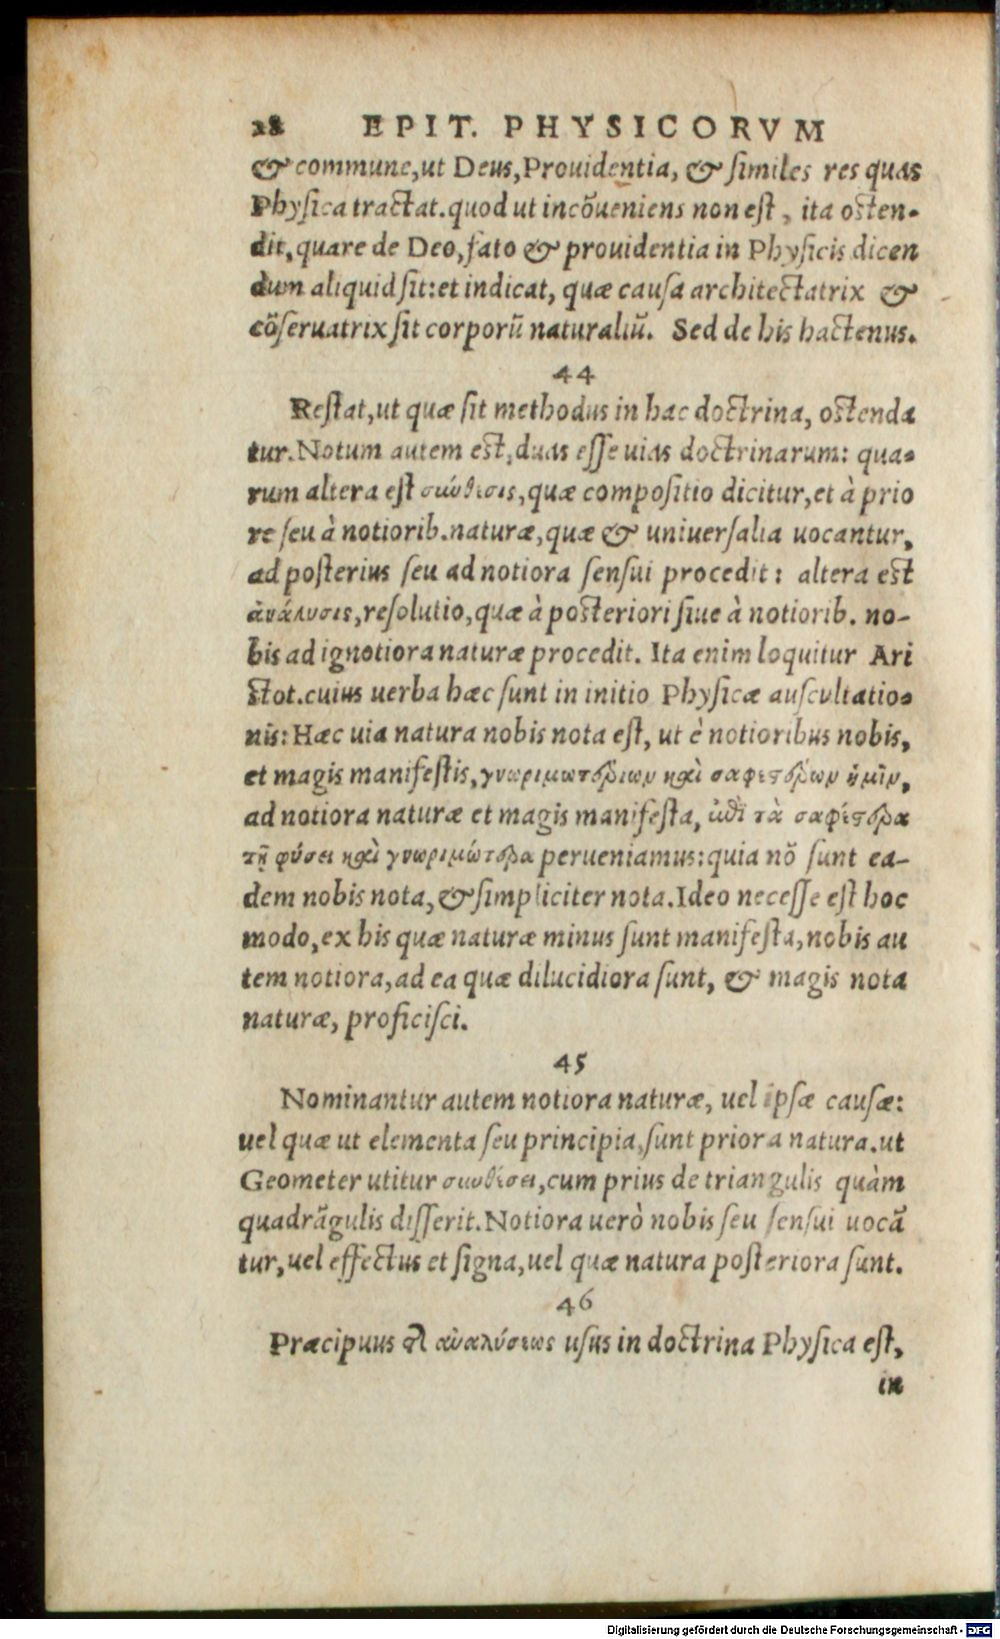 28 EPIT. PHYSICORVM
& commune, ut Deus, Prouidentia, & similes res quas
Physica tractat. quod ut incōueniens non est, ita osten-
dit, quare de Deo, fato & prouidentia in Physicis dicen
dum aliquid sit: et indicat, quæ causa architectatrix &
cōseruatrix sit corporū naturaliū. Sed de his hactenus.
44
Restat, ut quæ sit methodus in hac doctrina, ostenda
tur. Notum autem est, duas esse uias doctrinarum: qua-
rum altera est σύνθεσις, quæ compositio dicitur, et à prio
re seu à notiorib. naturæ, quæ & uniuersalia uocantur,
ad posterius seu ad notiora sensui procedit: altera est
ἀνάλυσις, resolutio, quæ à posteriori siue à notiorib. no-
bis ad ignotiora naturæ procedit. Ita enim loquitur Ari
stot. cuius uerba hæc sunt in initio Physicæ auscultatio-
nis: Hæc uia natura nobis nota est, ut è notioribus nobis,
et magis manifestis, γνωριμωτέρων καὶ σαφεστέρων ἡμῖν,
ad notiora naturæ et magis manifesta, ἐπὶ τὰ σαφέστερα
τῇ φύσει καὶ γνωριμώτερα perueniamus: quia nō sunt ea-
dem nobis nota, & simpliciter nota. Ideo necesse est hoc
modo, ex his quæ naturæ minus sunt manifesta, nobis au
tem notiora, ad ea quæ dilucidiora sunt, & magis nota
naturæ, proficisci.
45
Nominantur autem notiora naturæ, uel ipsæ causæ:
uel quæ ut elementa seu principia, sunt priora natura. ut
Geometer utitur συνθέσει, cum prius de triangulis quàm
quadrāgulis disserit. Notiora uerò nobis seu sensui uocā
tur, uel effectus et signa, uel quæ natura posteriora sunt.
46
Præcipuus τῆς ἀναλύσεως usus in doctrina Physica est,
in
Digitalisierung gefördert durch die Deutsche Forschungsgemeinschaft - DFG